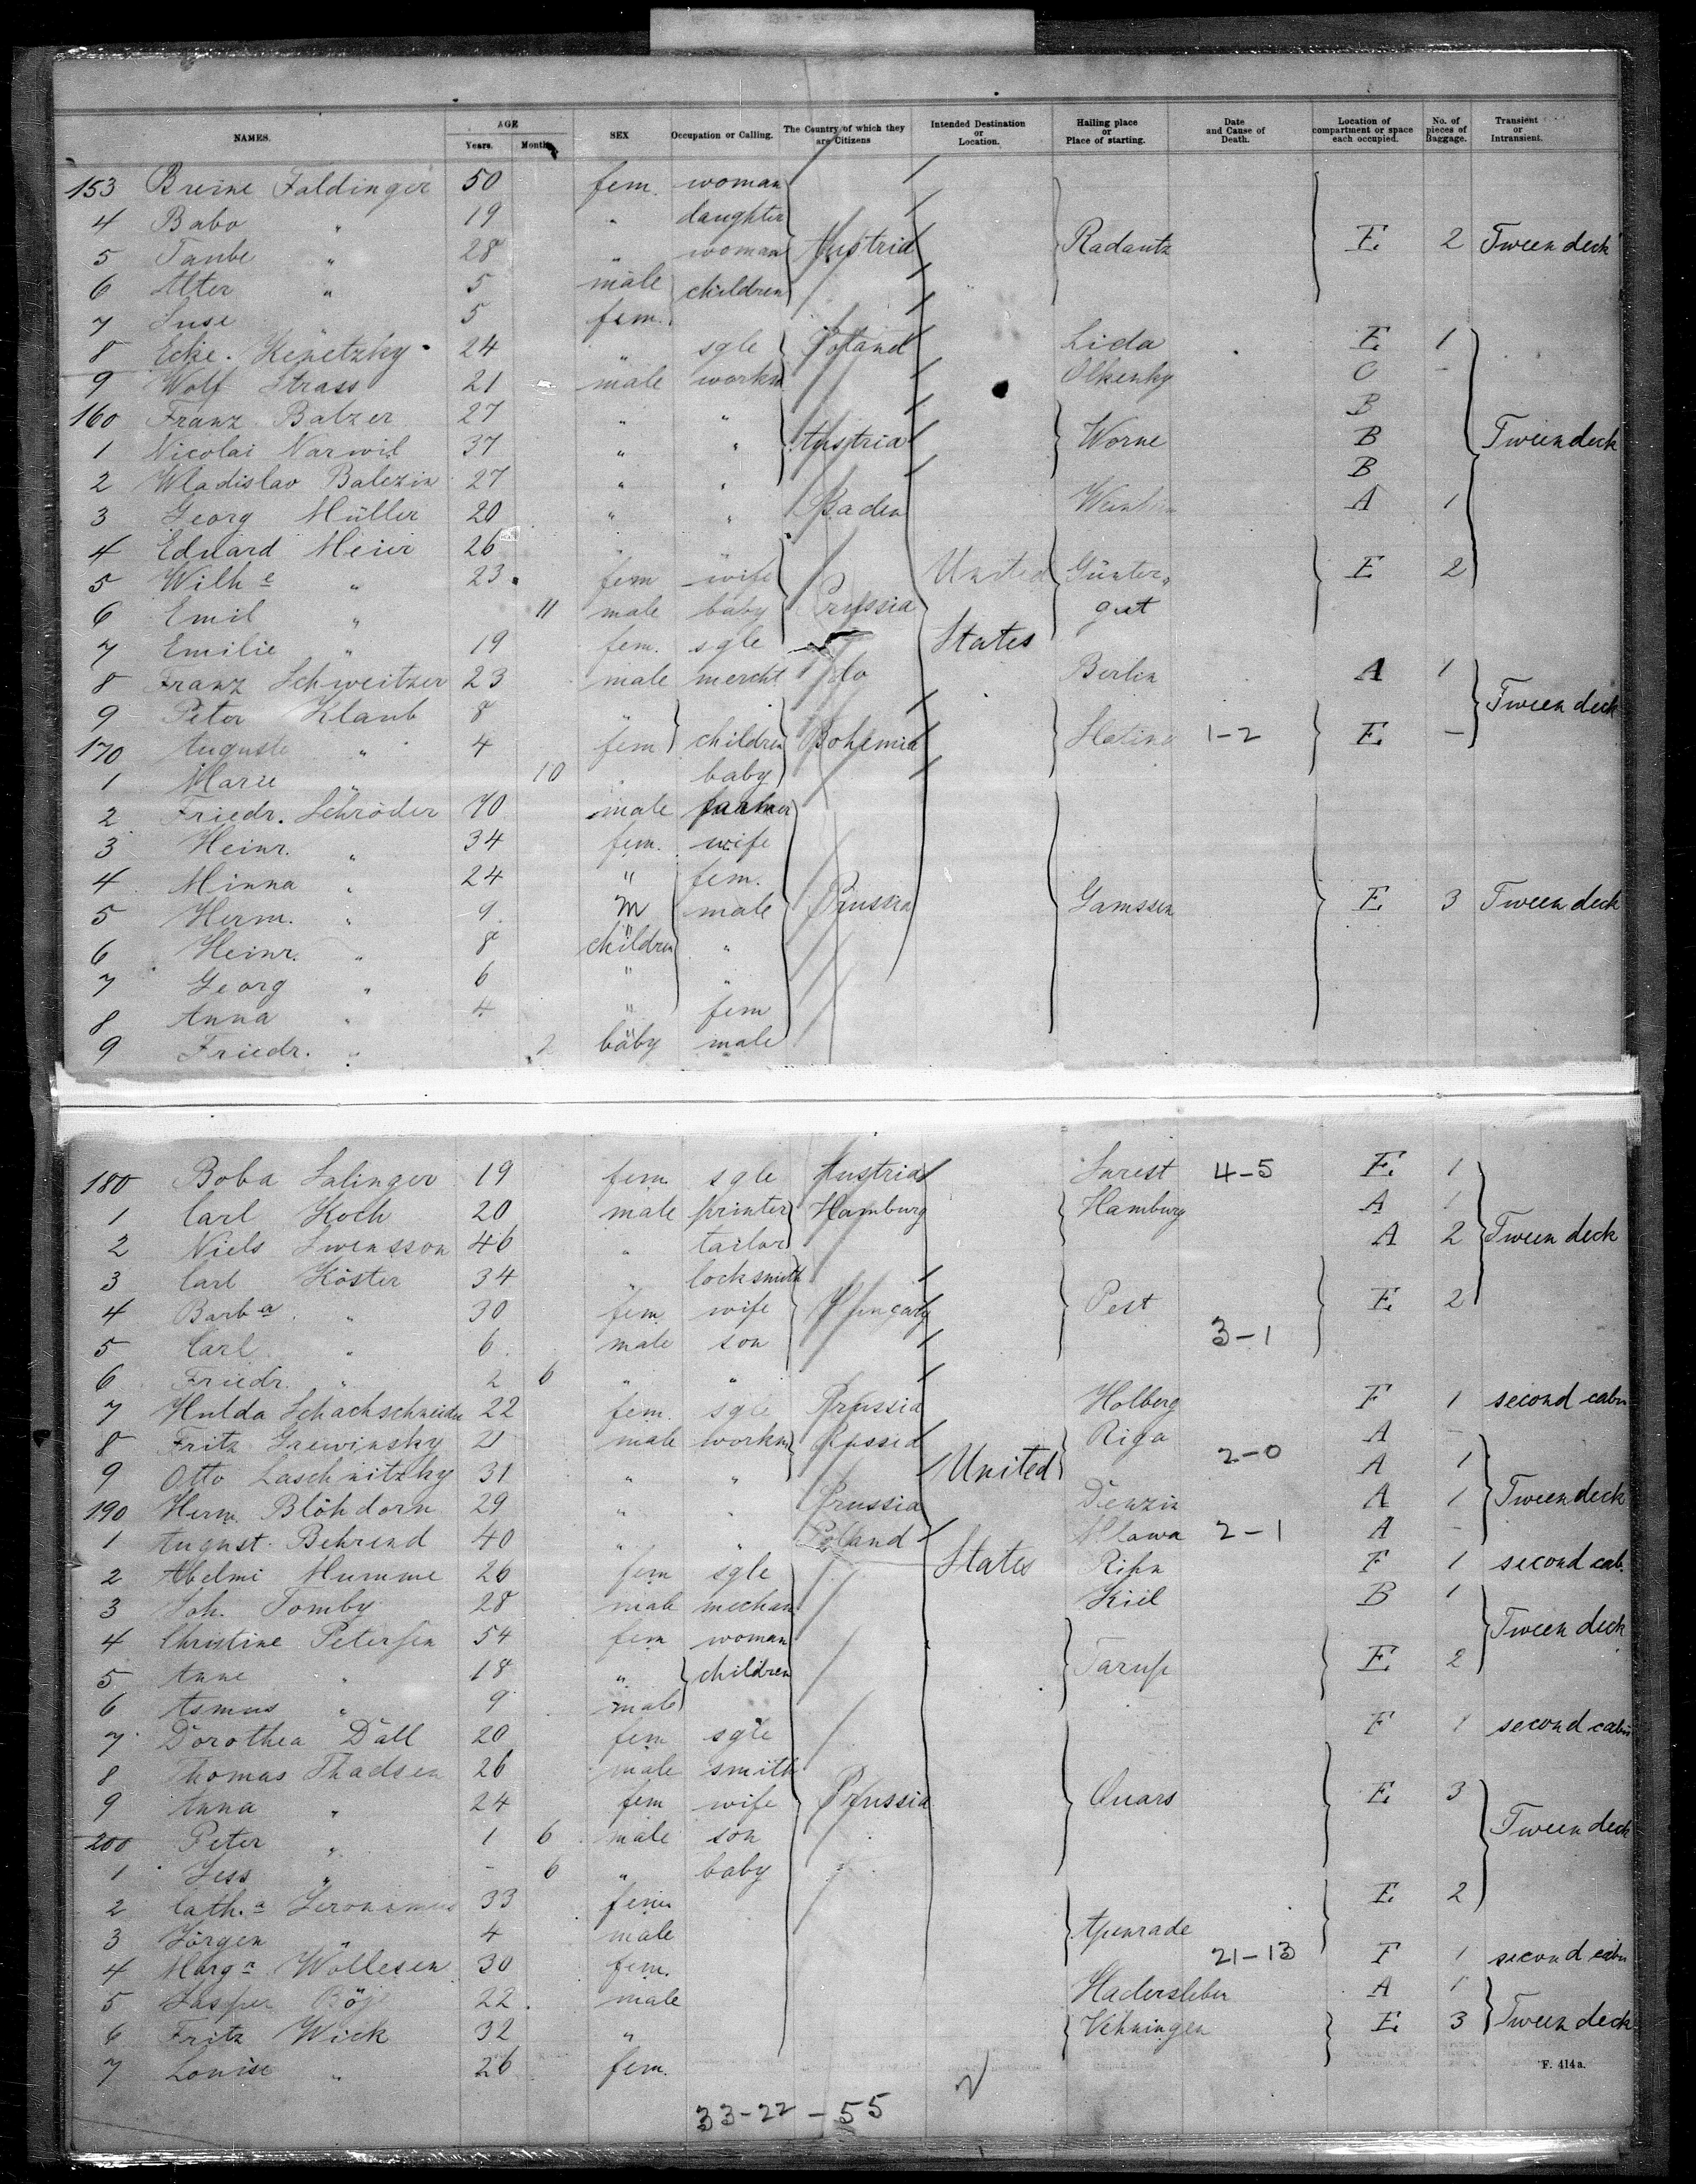 NAMES. AGE Years. Months SEX Occupation or Calling. The Country of which they are Citizens Intended Destination or Location. Hailing place or Place of starting. Date and Cause of Death. Location of compartment or space each occupied. No. of pieces of Baggage. Transient or Intransient.
153 Breine Faldinger 50 fem. woman
4 Babo " 19 " daughter
5 Taube " 28 " woman Austria Radautz E 2 Tween deck
6 Alter " 5 male children
7 Suse " 5 fem.
8 Ecke Kenetzky 24 " sgle Poland Lida E 1
9 Wolf Strass 21 male workm Olkenky O -
160 Franz Balzer 27 " " B
1 Nicolai Narwil 37 " " Austria Worne B Tween deck
2 Wladislav Balezin 27 " " B
3 Georg Müller 20 " " Baden A 1
4 Eduard Meier 26 " "
5 Wilhe " 23 fem wife United Günters E 2
6 Emil " 11 male baby Prussia gut
7 Emilie " 19 fem. sgle States
8 Franz Schweitzer 23 male mercht do Berlin A 1
9 Peter Klaub 8 " Tween deck
170 Auguste " 4 fem children Bohemia Slatina 1-2 E -
1 Marie " 10 " baby
2 Friedr. Schröder 70 male farmer
3 Heinr. " 34 fem. wife
4 Minna " 24 " fem.
5 Herm. " 9 m male Prussia Gamssen E 3 Tween deck
6 Heinr. " 8 children "
7 Georg " 6 " "
8 Anna " 4 " fem
9 Friedr. " 2 baby male
180 Boba Salinger 19 fem sgle Austria Surest 4-5 E 1
1 Carl Koch 20 male printer Hamburg Hamburg A 1
2 Niels Swensson 46 " tailor A 2 Tween deck
3 Carl Köster 34 " locksmith
4 Barba " 30 fem wife Hungary Pest E 2
5 Carl " 6 male son 3-1
6 Friedr. " 2 6 " "
7 Hulda Schachschneider 22 fem. sgle Prussia Holberg F 1 second cabin
8 Fritz Grewinsky 21 male workm Russia Riga A -
9 Otto Laschnitzky 31 " " United 2-0 A 1
190 Herm. Blöhdorn 29 " " Prussia Denzin A 1 Tween deck
1 August Behrend 40 " " Poland Mlawa 2-1 A -
2 Abelmi Mumme 26 fem sgle States F 1 second cab.
3 Joh. Tomby 28 male mechan Kiel B 1
4 Christine Petersen 54 fem woman Tween deck
5 Anne " 18 " children Tarup E 2
6 Asmus " 9 male
7 Dorothea Dall 20 fem sgle F 1 second cabin
8 Thomas Thadsen 26 male smith
9 Anna " 24 fem wife Prussia Quars E 3
200 Peter " 1 6 male son Tween deck
1 Jess " - 6 " baby
2 Cath.a 33 fem E 2
3 Jörgen " 4 male Apenrade
4 Marga Wollesen 30 fem. 21-13 F 1 second cabin
5 Jasper 22 male Hadersleben A 1
6 Fritz Wick 32 " Vehningen E 3 Tween deck
7 Louise " 26 fem.
F. 414a.
33-22-55